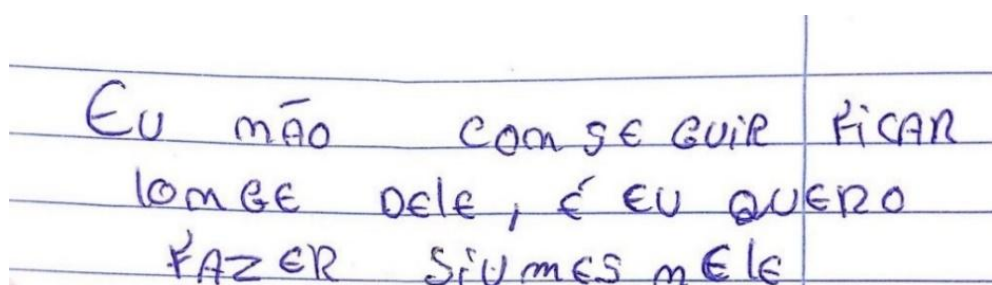 Eu mão comseguir ficar
lomge dele, é eu quero
fazer siumes mele